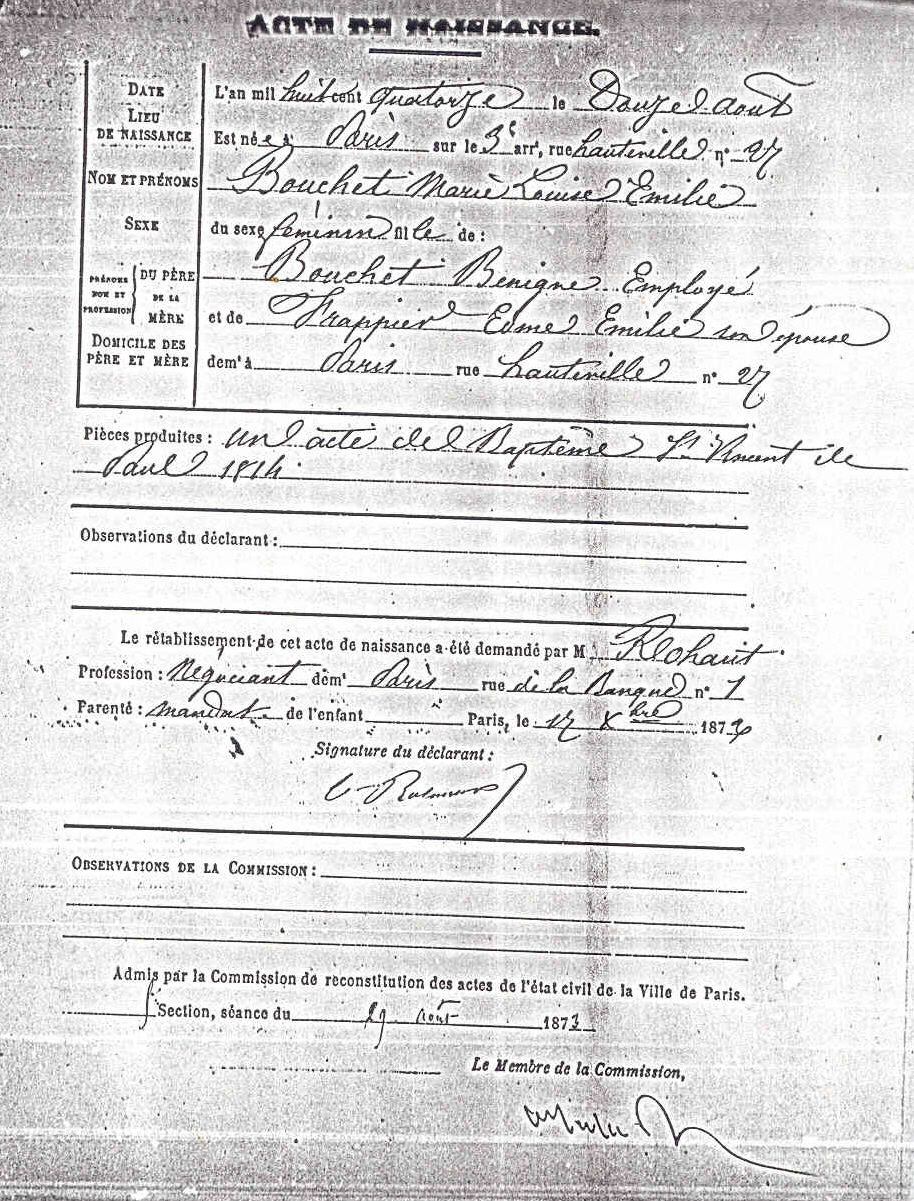 ACTE DE NAISSANCE.
DATE
LIEU
DE NAISSANCE
L'an mil huit cent quatorze le Douze août
Est née à Paris sur le 3e arr, rue hauteville n° 27
NOM ET PRÉNOMS
Bouchet Marie Louise Emilie
SEXE
du sexe féminin fille de :
PRÉNOMS NOM ET PROFESSION
DU PÈRE
Bouchet Benigne Employé
DE LA MÈRE
et de Frappier Edme Emilie son épouse
DOMICILE DES PÈRE ET MÈRE
demt à Paris rue hauteville n° 27
Pièces produites : un acte de Baptême St Vincent de
Paul 1814
Observations du déclarant :
Le rétablissement de cet acte de naissance a été demandé par M
Profession : Négociant demt Paris rue de la Banque n° 1
Parenté : mandat de l'enfant Paris, le 17 Xbre 187
Signature du déclarant :
OBSERVATIONS DE LA COMMISSION :
Admis par la Commission de reconstitution des actes de l'état civil de la Ville de Paris.
Section, séance du 29 Août 1873
Le Membre de la Commission,